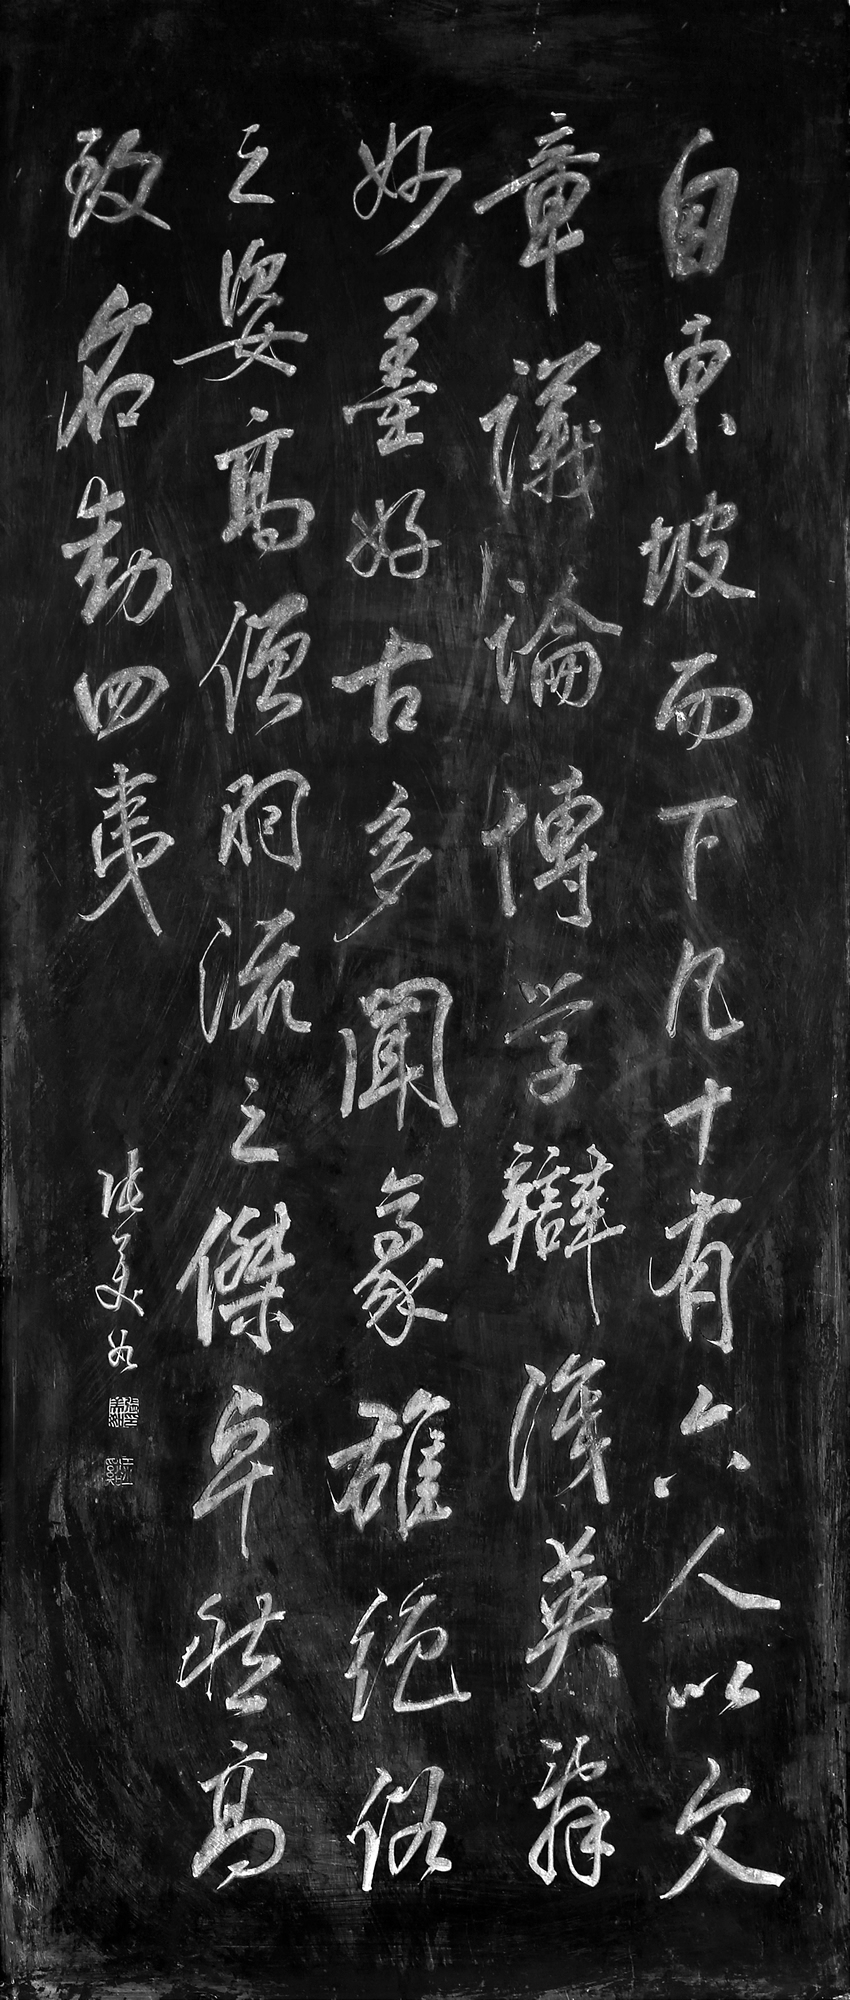 自東坡而下凡十有六人以文
章議論博学辯識英辭
妙墨好古多聞豪雄絕俗
之姿高僧羽流之傑卓然高
致名動四夷
張美如